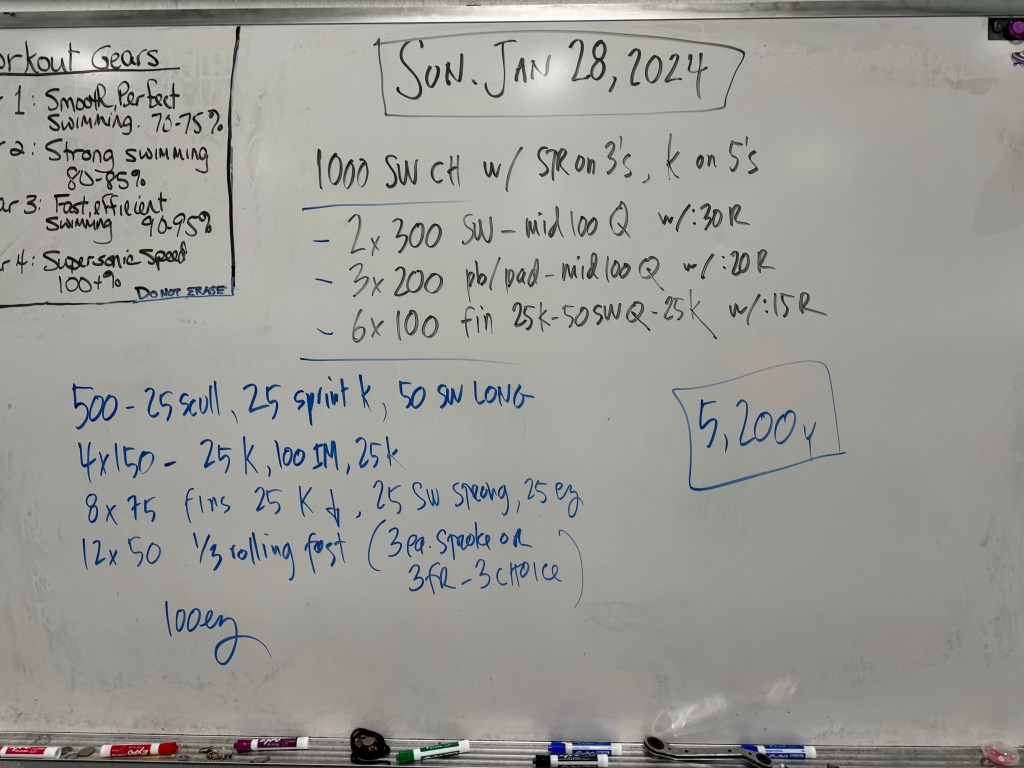 orkout Gears
1: Smooth, Perfect
SWIMMING. 70-75%
2: Strong SWIMMING
80-85%
ar 3: Fast, efficient
SWIMMING 90-95%
r 4: Supersonic Speed
100+%
DO NOT ERASE
SUN. JAN 28, 2024
1000 SW CH w/ STR on 3's, K on 5's
- 2x300 SW - mid 100 Q w/:30R
- 3x200 pb/pad - mid 100 Q w/:20R
- 6x100 fin 25K-50SWQ-25K w/:15R
500 - 25 scull, 25 sprint k, 50 SW LONG
4x150 - 25 K, 100 IM, 25k
8x75 fins 25 K ↓, 25 SW strong, 25 ez
12x50 1/3 rolling fast (3 ea. stroke OR
3 FR - 3 CHOICE)
100 ez
5,200y